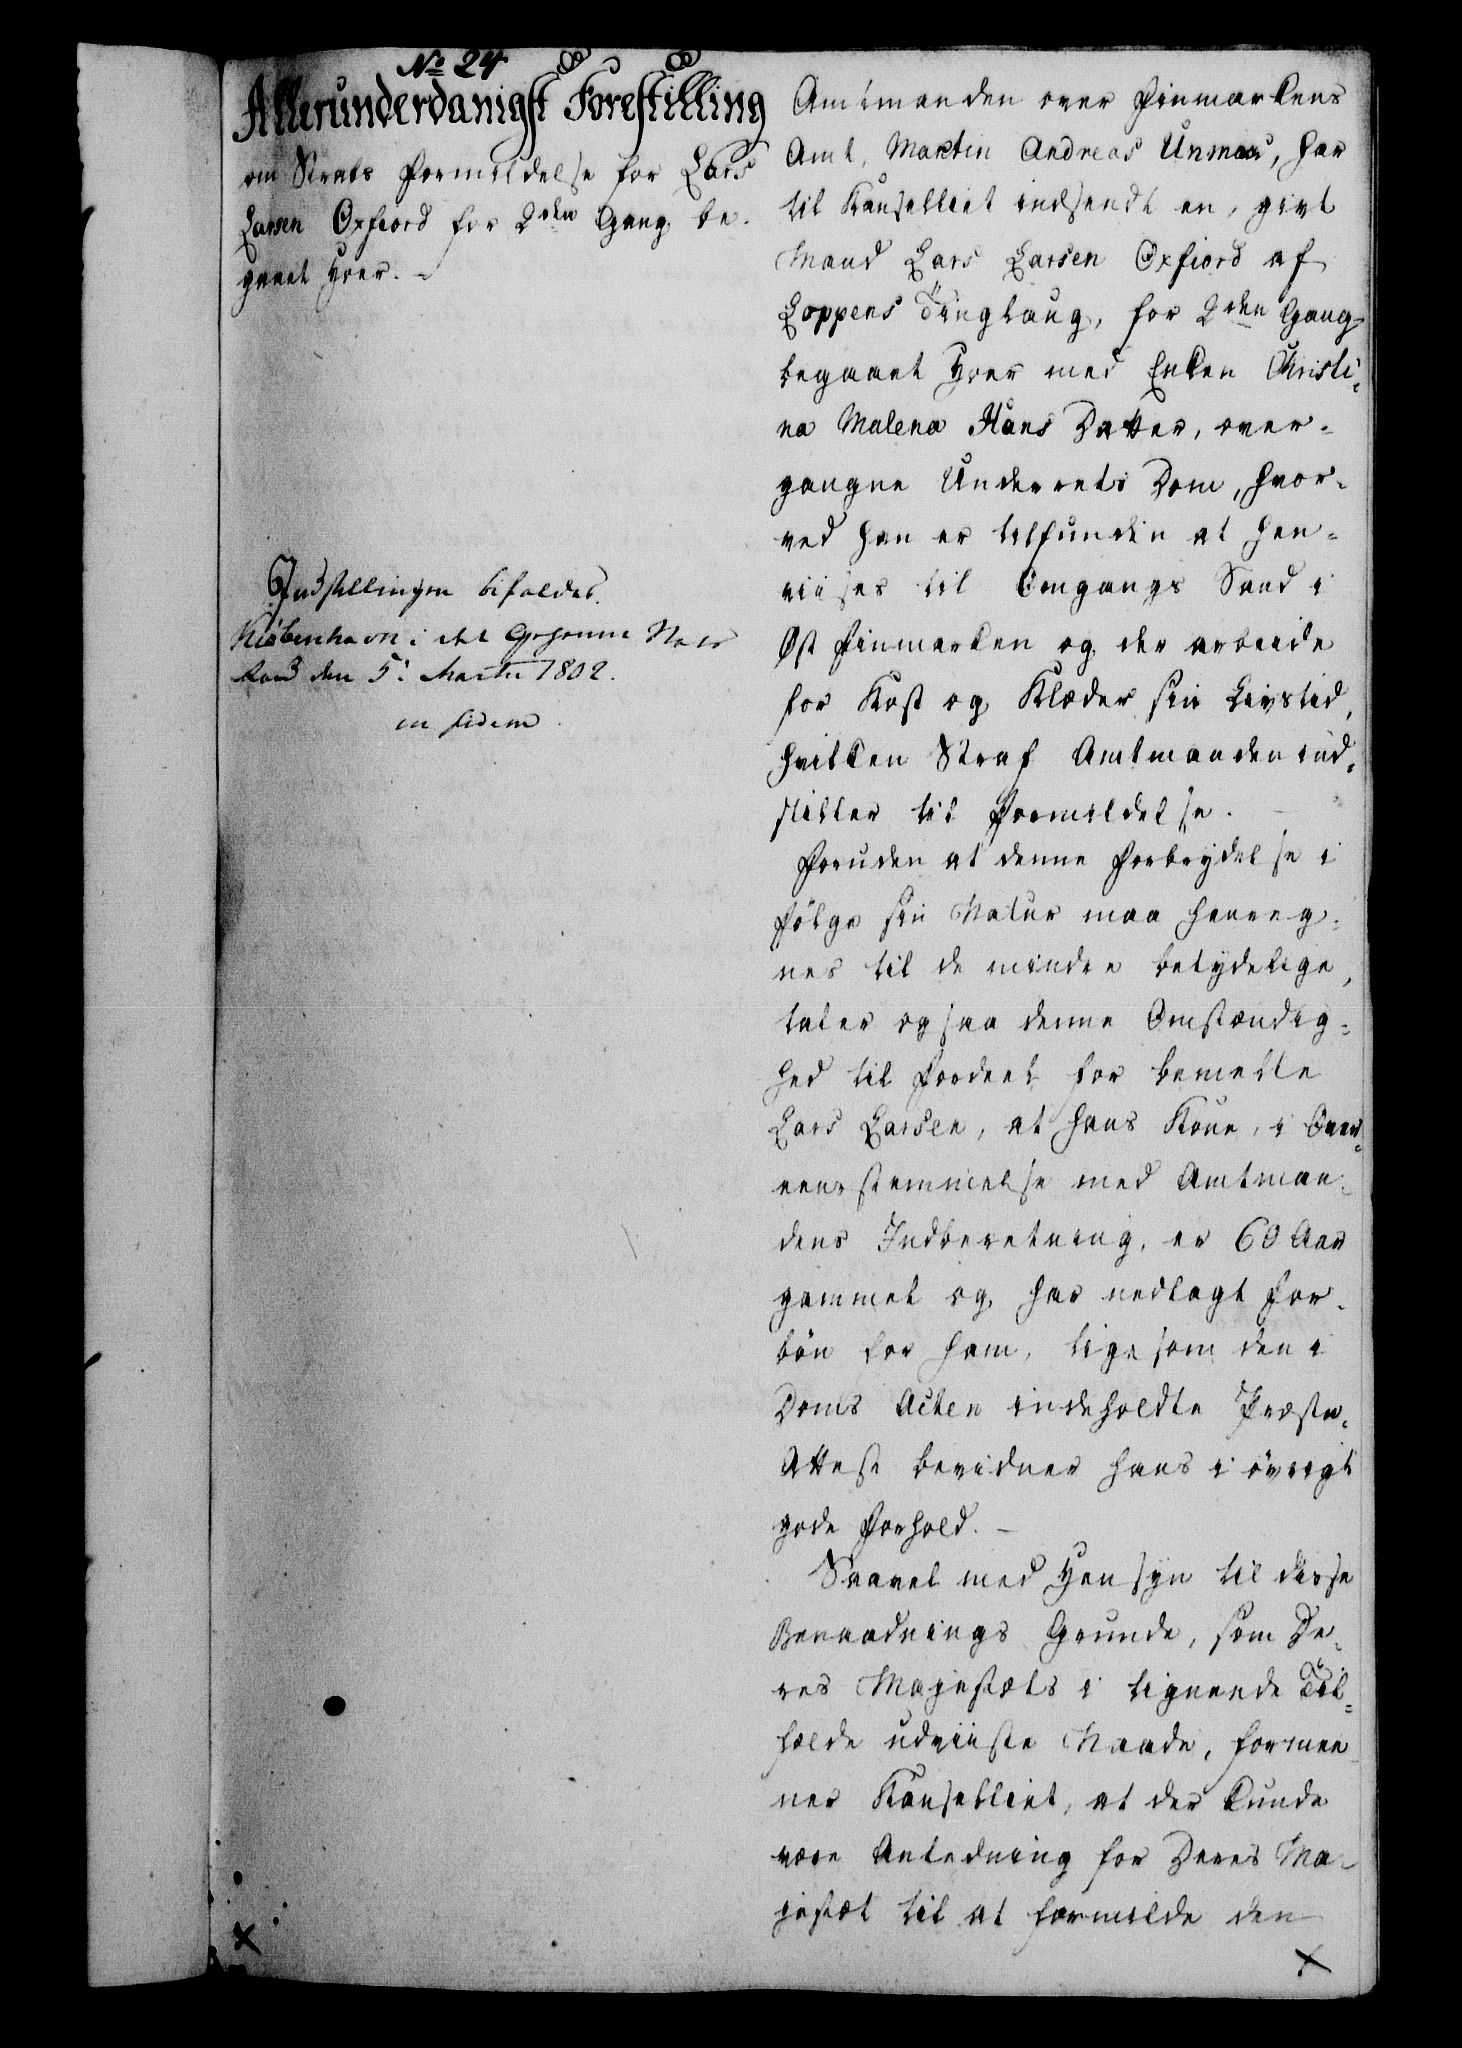 No 24
Allerunderdanigst Forestilling
om Strafs Formildelse for Lars
Larsen Oxfiord for 2den Gang be-
gaaet Hoer.
Indstillingen bifaldes.
Kiöbenhavn i det Geheime Stats
Raad den 5: Martii 1802.
in fidem
Amtmanden over Finmarkens
Amt, Martin Andreas Unmac, har
til Kanselliet indsendt en, givt
Mand Lars Larsen Oxfiord af
Loppens Tinglaug, for 2den Gang
begaaet Hoer med Enken Christi-
na Malena Hans Datter, over-
gangne Underrets Dom, hvor-
ved han er tilfunden at hen-
viises til Omgangs Sand i
Øst Finmarken og der arbeide
for Kost og Klæder sin Livstid,
hvilken Straf Amtmanden ind-
stiller til Formildelse.
Foruden at denne Forbrydelse i
Fölge sin Natur maa henreg-
nes til de mindre betydelige,
taler ogsaa denne Omstændig-
hed til Fordeel for bemelte
Lars Larsen, at hans Kone, i Over-
eensstemmelse med Amtman-
dens Indberetning, er 60 Aar
gammel og har nedlagt For-
bön for ham, ligesom den i
Doms Acten indeholdte Præste-
Attest bevidner hans i övrigt
gode Forhold.
Saavel med Hensyn til disse
Benaadnings Grunde, som De-
res Majestæts i lignende Til-
fælde udviiste Naade, formee
ner Kanselliet, at der kunde
være Anledning for Deres Ma-
jestæt til at formilde den